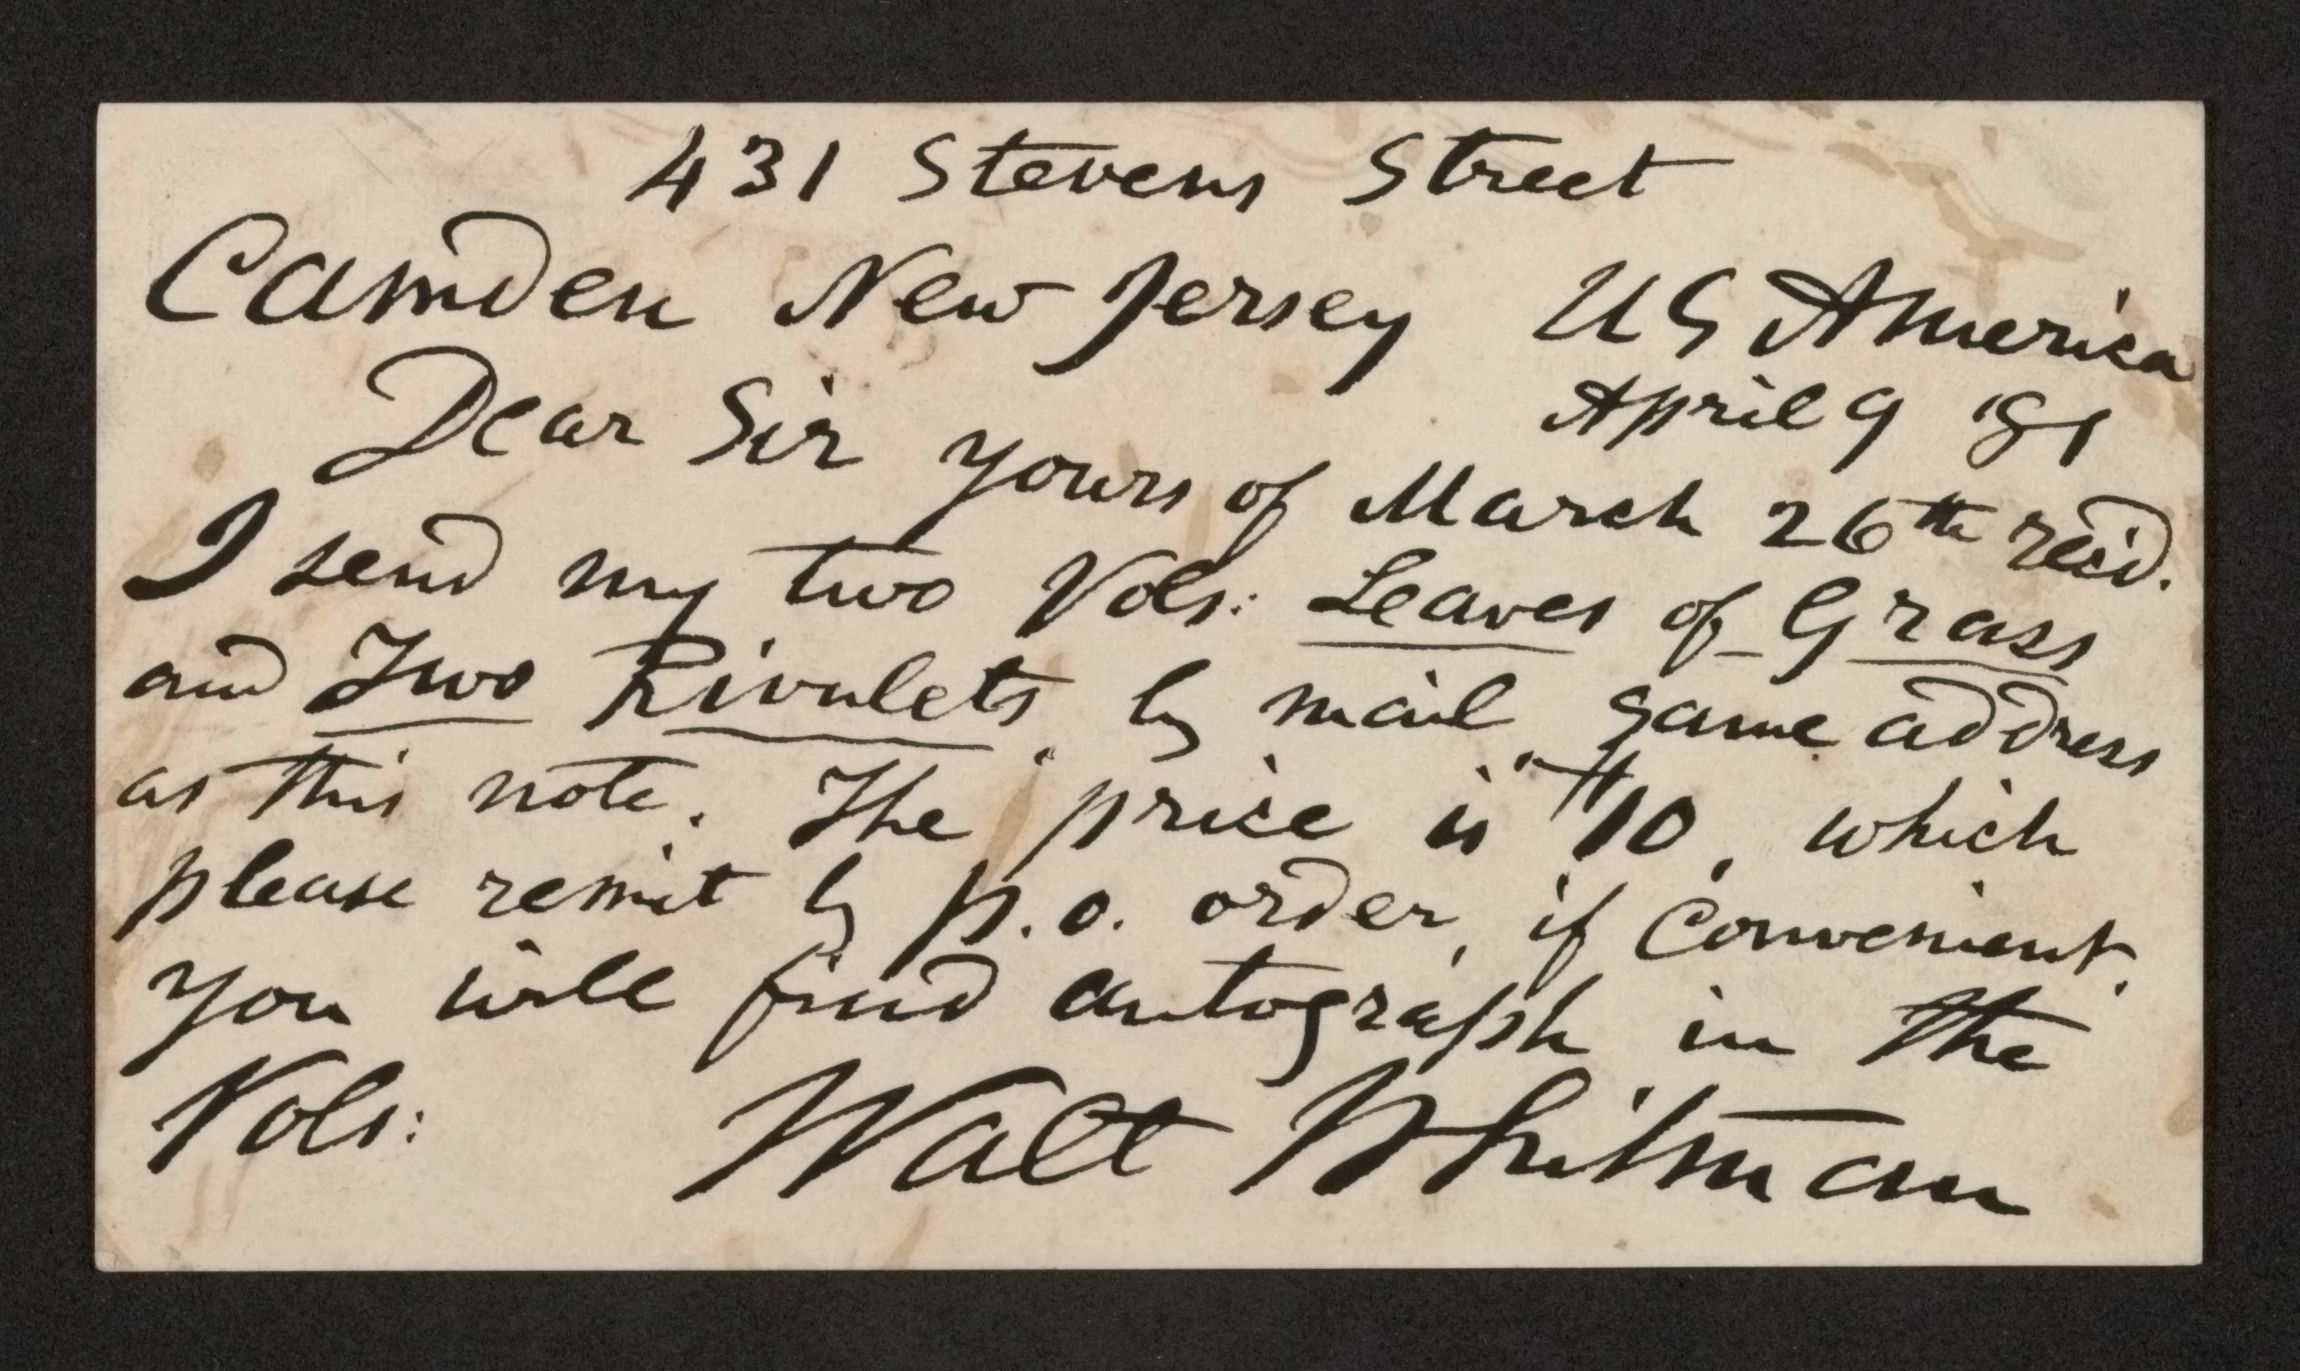 431 Stevens Street
Camden New Jersey U S America
April 9 '81
Dear Sir yours of March 26th rec'd.
I send my two Vols: Leaves of Grass
and Two Rivulets, by mail, same address
as this note. The price is $10, which
please remit by p.o. order, if convenient.
You will find autograph in the
Vols: Walt Whitman